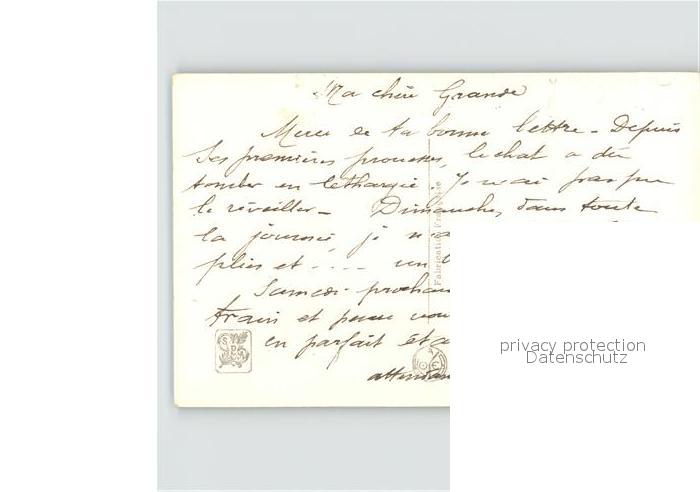 Ma chère Grande
Merci de ta bonne lettre - Depuis
ses premières prouesses, le chat a dû
tomber en léthargie. Je n'ai pas pu
le réveiller - Dimanche, dans toute
la journée, je n'a
plié et .... un
Samedi prochain
train et pour vou
en parfait éta
attendan
Fabrication Française
privacy protection
Datenschutz